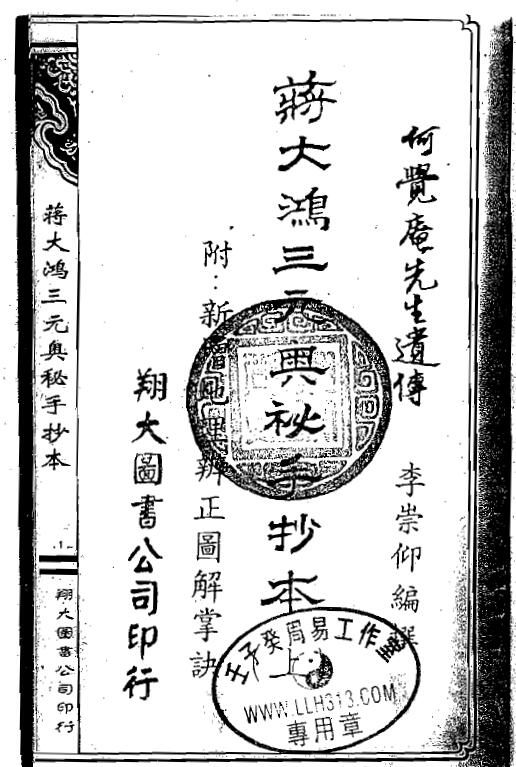 何覺庵先生遺傳　李崇仰編撰
蔣大鴻三元奧祕手抄本
附：新增地理辨正圖解掌訣
翔大圖書公司印行
蔣大鴻三元奥秘手抄本
1
翔大圖書公司印行
壬子癸周易工作室
WWW.LLH313.COM
專用章